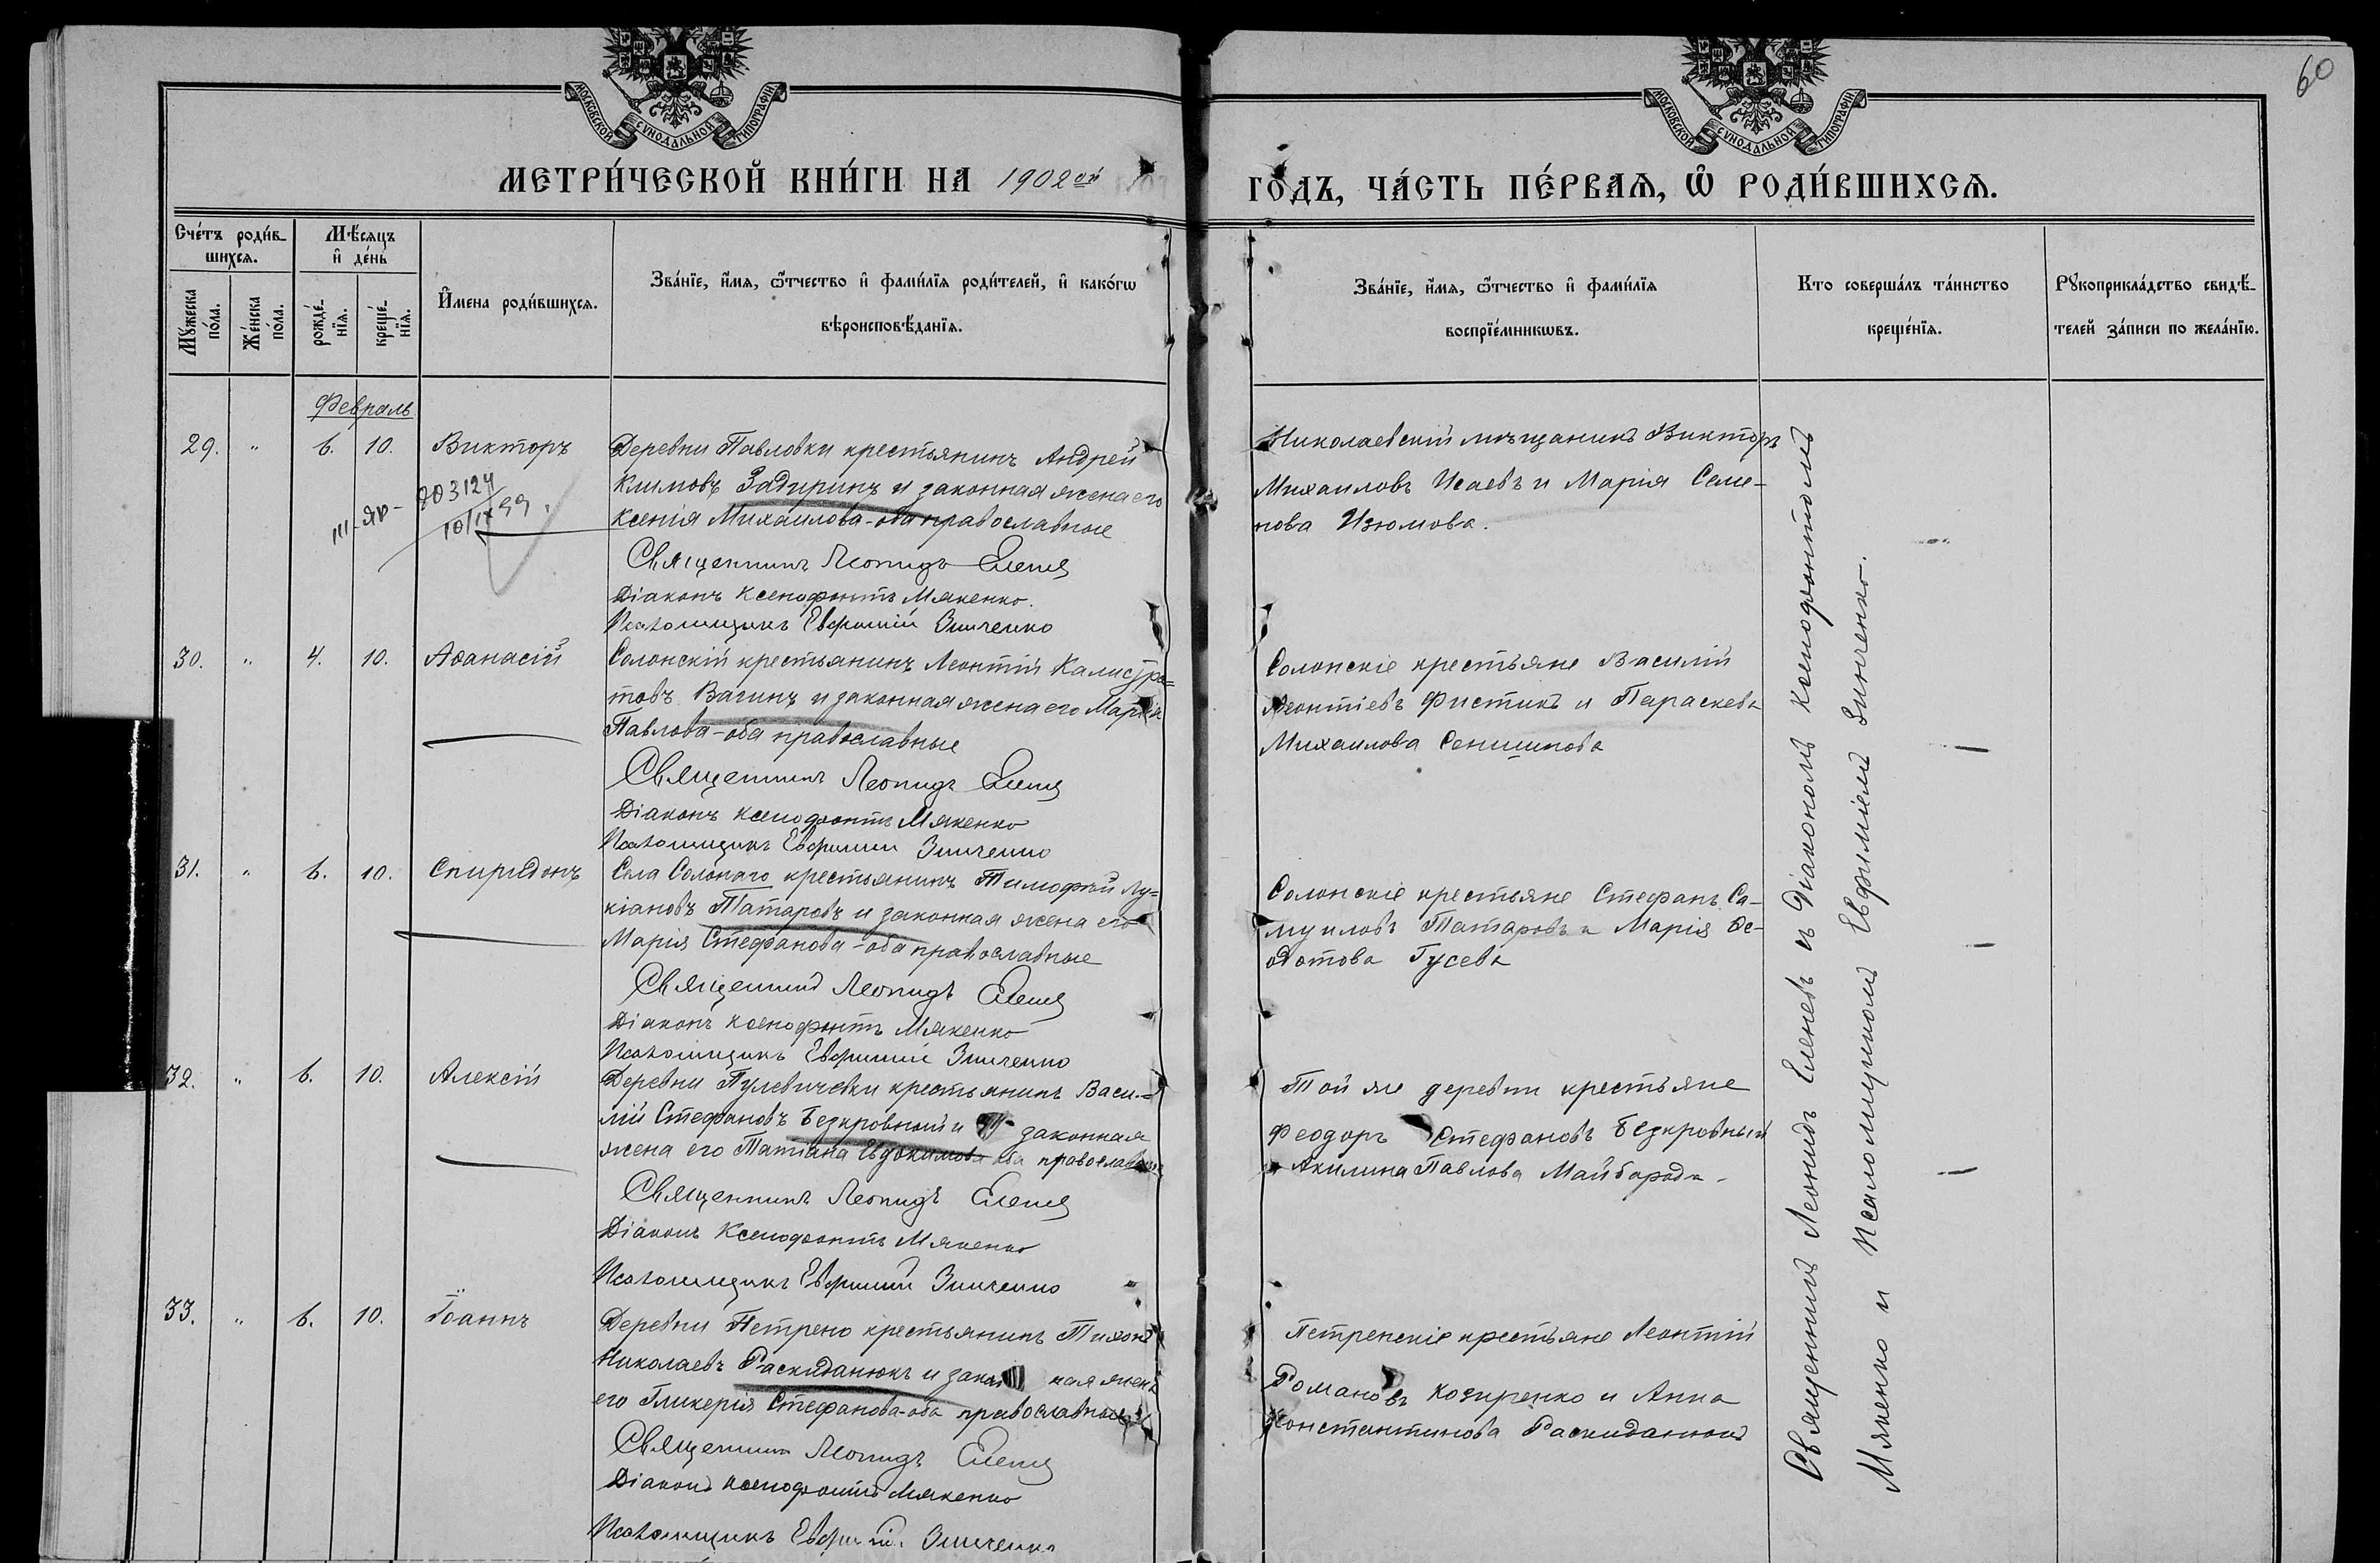 60
МОСКОВСКОЙ СѴНОДАЛЬНОЙ ТИПОГРАФІИ
МОСКОВСКОЙ СѴНОДАЛЬНОЙ ТИПОГРАФІИ
МЕТРИ́ЧЕСКОЙ КНИ́ГИ НА 1902 ой
ГО́ДЪ, ЧА́СТЬ ПЕ́РВАѦ, Ѽ РОДИ́ВШИХСѦ.
Сче́тъ роди́в-
шихсѧ.
Мѣ́сѧцъ
и҆ де́нь
Мꙋ́жеска
по́ла.
Же́нска
по́ла.
рожде́-
нїѧ.
креще́-
нїѧ.
И҆́мена роди́вшихсѧ.
Зва́нїе, и҆́мѧ, ѻ҆́тчество и҆ фами́лїѧ роди́телей, и҆ како́гѡ
вѣроисповѣ́данїѧ.
Зва́нїе, и҆́мѧ, ѻ҆́тчество и҆ фами́лїѧ
воспрїе́мникѡвъ.
Кто соверша́лъ та́инство
креще́нїѧ.
Рꙋкоприкла́дство свидѣ́-
телей за́писи по жела́нїю.
Февраль
29. " 6. 10. Викторъ
Деревни Павловки крестьянинъ Андрей
Климовъ Задиринъ и законная жена его
Ксенія Михаилова - оба православные
Священникъ Леонидъ Еленев
Діаконъ Ксенофонтъ Мякенко.
Псаломщикъ Евфимій Зинченко
III-ЯР- 703124
10/IX 59.
Николаевскій мѣщанинъ Викторъ
Михаиловъ Исаевъ и Марія Семе-
нова Изюмова.
30. " 4. 10. Аѳанасій
Солонскій крестьянинъ Леонтій Калистра=
товъ Вагинъ и законная жена его Марія
Павлова - оба православные
Священникъ Леонидъ Еленев
Діаконъ Ксенофонтъ Мякенко
Псаломщикъ Евфимій Зинченко
Солонскіе крестьяне Василій
Леонтіевъ Фистикъ и Параскева
Михаилова Сенишнова
31. " 6. 10. Спиридонъ
Села Солонаго крестьянинъ Тимофей Лу=
кіановъ Татаровъ и законная жена его
Марія Стефанова - оба православные
Священникъ Леонидъ Еленев
Діаконъ Ксенофонтъ Мякенко
Псаломщикъ Евфимій Зинченко
Солонскіе крестьяне Стефанъ Са-
муиловъ Татаровъ и Марія Ѳе-
дотова Гусева
32. " 6. 10. Алексій
Деревни Пулевичевки крестьянинъ Васи=
лій Стефановъ Безкровный и законная
жена его Татіана Евдокимова оба православные
Священникъ Леонидъ Еленев
Діаконъ Ксенофонтъ Мякенко
Псаломщикъ Евфимій Зинченко
Той же деревни крестьяне
Феодоръ Стефановъ Безкровный
и Акилина Павлова Майборода -
33. " 6. 10. Іоаннъ
Деревни Петрено крестьянинъ Тихонъ
Николаевъ Раскиданюкъ и закон ная жена
его Гликерія Стефанова - оба православные
Священникъ Леонидъ Еленев
Діаконъ Ксенофонтъ Мякенко
Псаломщикъ Евфимій Зинченко
Петренскіе крестьяне Леонтій
Романовъ Козиренко и Анна
Константинова Раскиданюкъ
Священникъ Леонидъ Еленевъ съ Діакономъ Ксенофонтомъ
Мякенко и Псаломщикомъ Евфиміемъ Зинченко.